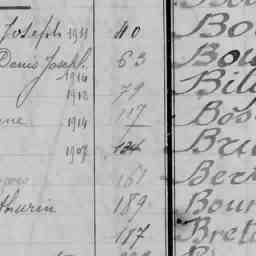 Joseph 1911 40 Bo
Denis Joseph 63 Bou
1914
1918 79 Bil
ne 1914 117 Bôs
1907 134 Bru
161 Ber
thurin 189 Bour
187 Bret